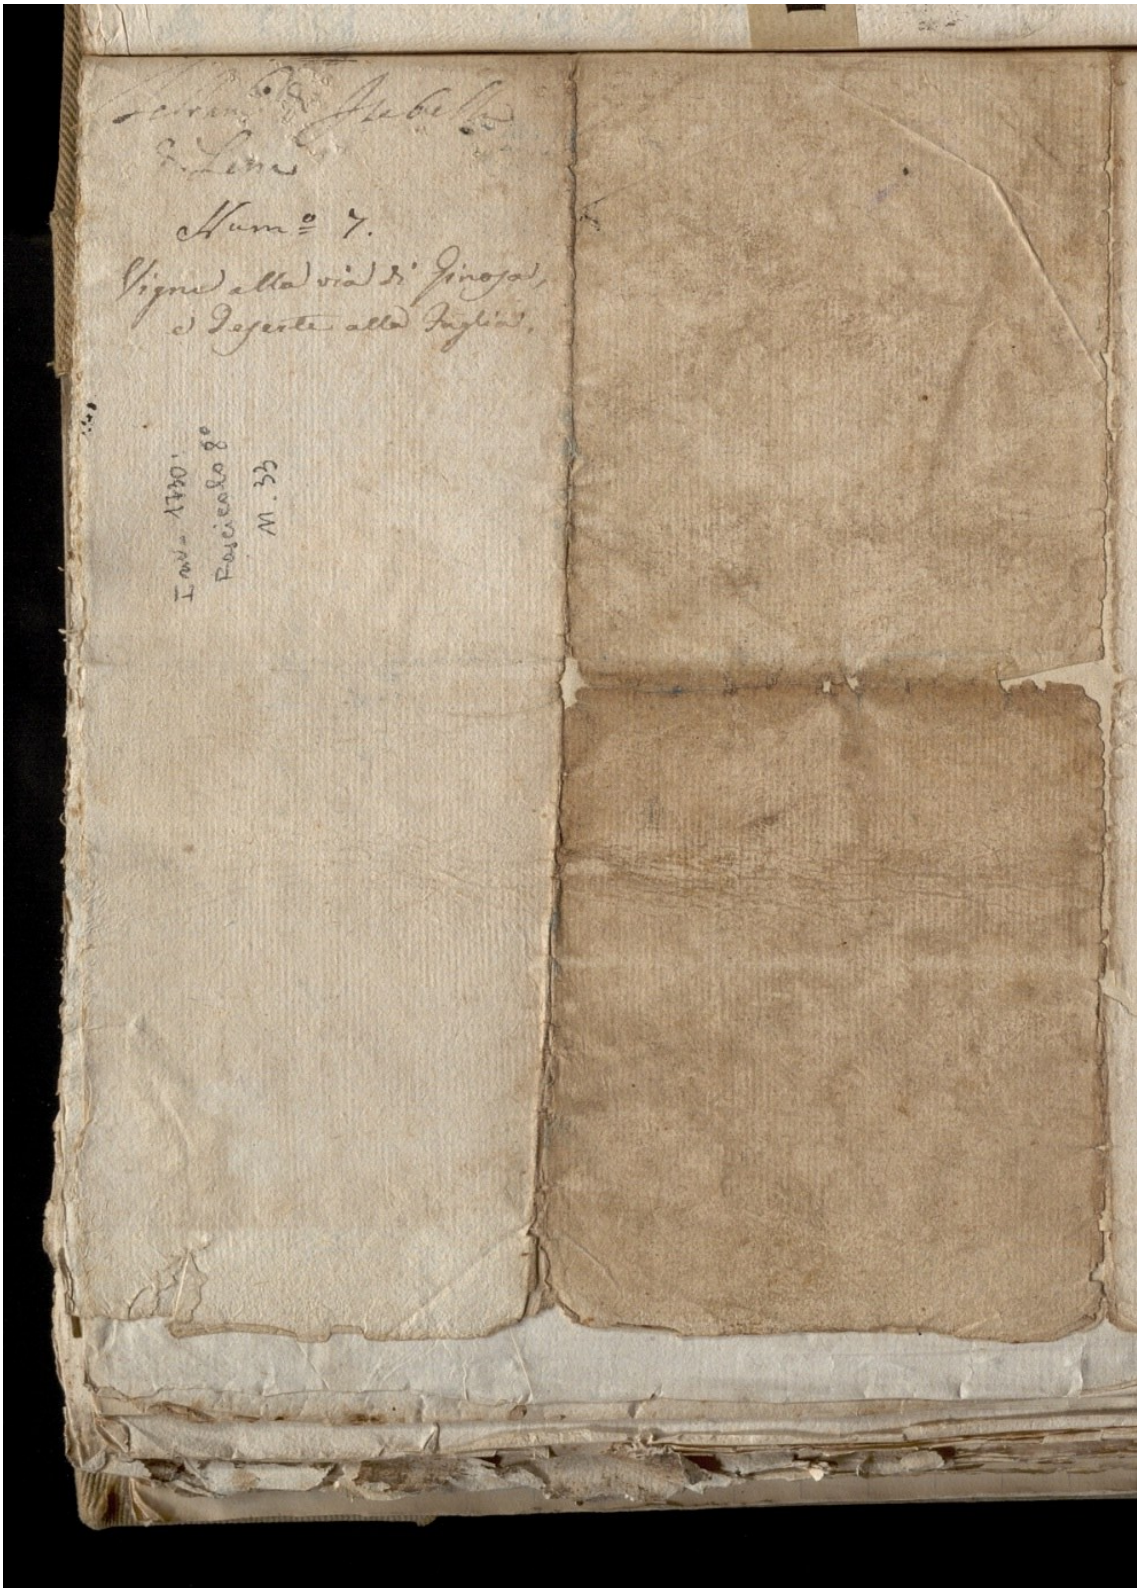 di Isabella
Num.º 7.
Vigne alla via di Ginosa,
e Deserte alla Puglia.
Inv. 1730:
Fascicolo 8º
N. 33